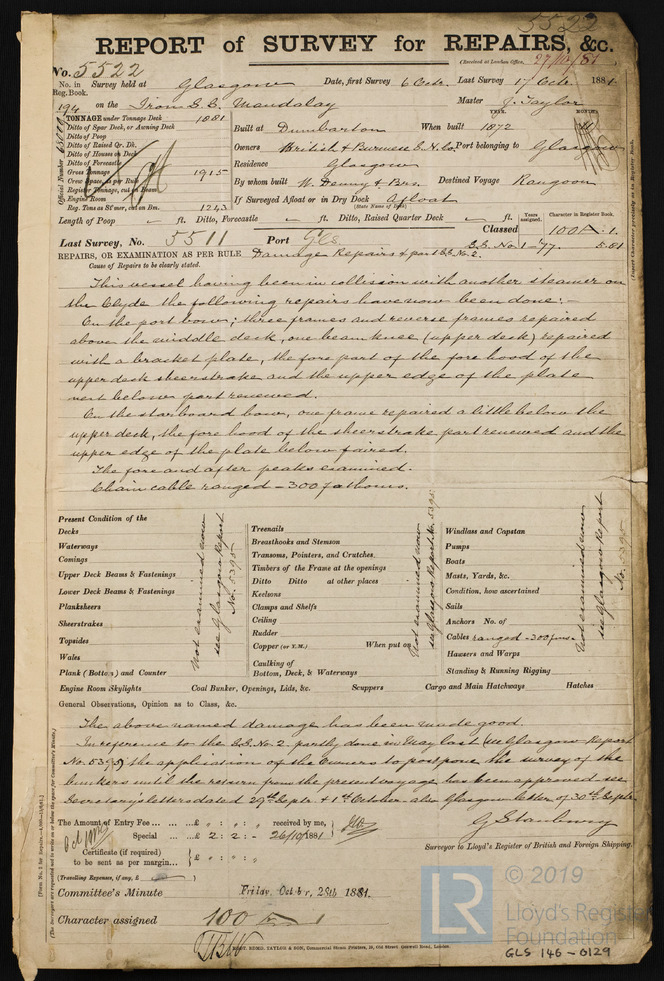 5522
REPORT of SURVEY for REPAIRS, &c.
(Received at London Office, 27/10/81
No. 5522
No. in Survey held at Glasgow Date, first Survey 6 Octr. Last Survey 17 Octr. 1881
Reg. Book.
194 on the Iron S.S. Mandalay Master J. Taylor
TONNAGE under Tonnage Deck 1881
Ditto of Spar Deck, or Awning Deck
Ditto of Poop
Ditto of Raised Qr. Dk.
Ditto of Houses on Deck
Ditto of Forecastle
Gross Tonnage 1915
Crew Space, as per Rule
Register Tonnage, cut on Beam
Engine Room
Reg. Tons as St'mer, cut on Bm. 1243
Official Number
YEAR. MONTH
Built at Dumbarton When built 1872
Owners British & Burmese S.N.Co. Port belonging to Glasgow
Residence Glasgow
By whom built W. Denny & Bros. Destined Voyage Rangoon
If Surveyed Afloat or in Dry Dock Afloat
(State Name of Dock)
Length of Poop ft. Ditto, Forecastle ft. Ditto, Raised Quarter Deck ft.
Classed
Years assigned. Character in Register Book.
100A.1.
S.S. No. 1-77. 5.81
Last Survey, No. 5511 Port Gls
REPAIRS, OR EXAMINATION AS PER RULE Damage Repairs & part S.S. No. 2.
Cause of Repairs to be clearly stated.
This vessel having been in collision with another steamer on
the Clyde the following repairs have now been done:-
On the port bow; three frames and reverse frames repaired
above the middle deck, one beam knee (upper deck) repaired
with a bracket plate, the fore part of the fore hood of the
upper deck sheerstrake and the upper edge of the plate
next below part renewed.
On the starboard bow, one frame repaired a little below the
upper deck, the fore hood of the sheerstrake part renewed and the
upper edge of the plate below faired.
The fore and after peaks examined.
Chain cable ranged - 300 fathoms.
Present Condition of the
Decks
Waterways
Comings
Upper Deck Beams & Fastenings
Lower Deck Beams & Fastenings
Planksheers
Sheerstrakes
Topsides
Wales
Plank (Bottom) and Counter
Engine Room Skylights
Not examined now
see Glasgow Report
No. 5395
Treenails
Breasthooks and Stemson
Transoms, Pointers, and Crutches
Timbers of the Frame at the openings
Ditto Ditto at other places
Keelsons
Clamps and Shelfs
Ceiling
Rudder
Copper (or Y.M.) When put on
Caulking of
Bottom, Deck, & Waterways
Coal Bunker, Openings, Lids, &c. Scuppers
Not examined now
see Glasgow Report No. 5395
Windlass and Capstan
Pumps
Boats
Masts, Yards, &c.
Condition, how ascertained
Sails
Anchors No. of
Cables ranged - 300 fms.
Hawsers and Warps
Standing & Running Rigging
Cargo and Main Hatchways Hatches
Not examined now
see Glasgow Report
No. 5395
General Observations, Opinion as to Class, &c.
The above named damage has been made good.
In reference to the S.S. No. 2. partly done in May last (see Glasgow Report
No. 5395) the application of the Owners to postpone the survey of the
bunkers until the return from the present voyage has been approved see
Secretary's letters dated 29th Septr. & 1st October. also Glasgow letter of 30th Septr.
The Amount of Entry Fee £ : : received by me,
Special £ 2 : 2 : - 26/10/1881
Certificate (if required)
to be sent as per margin £ : :
(Travelling Expenses, if any, £
G Stanbury
Surveyor to Lloyd's Register of British and Foreign Shipping.
Committee's Minute Friday, October, 28th 1881.
Character assigned 100 A 1
PORT. REIMD. TAYLOR & SON, Commercial Steam Printers, 19, Old Street, Goswell Road, London.
LR
© 2019
Lloyd's Register
Foundation
GLS 146-0129